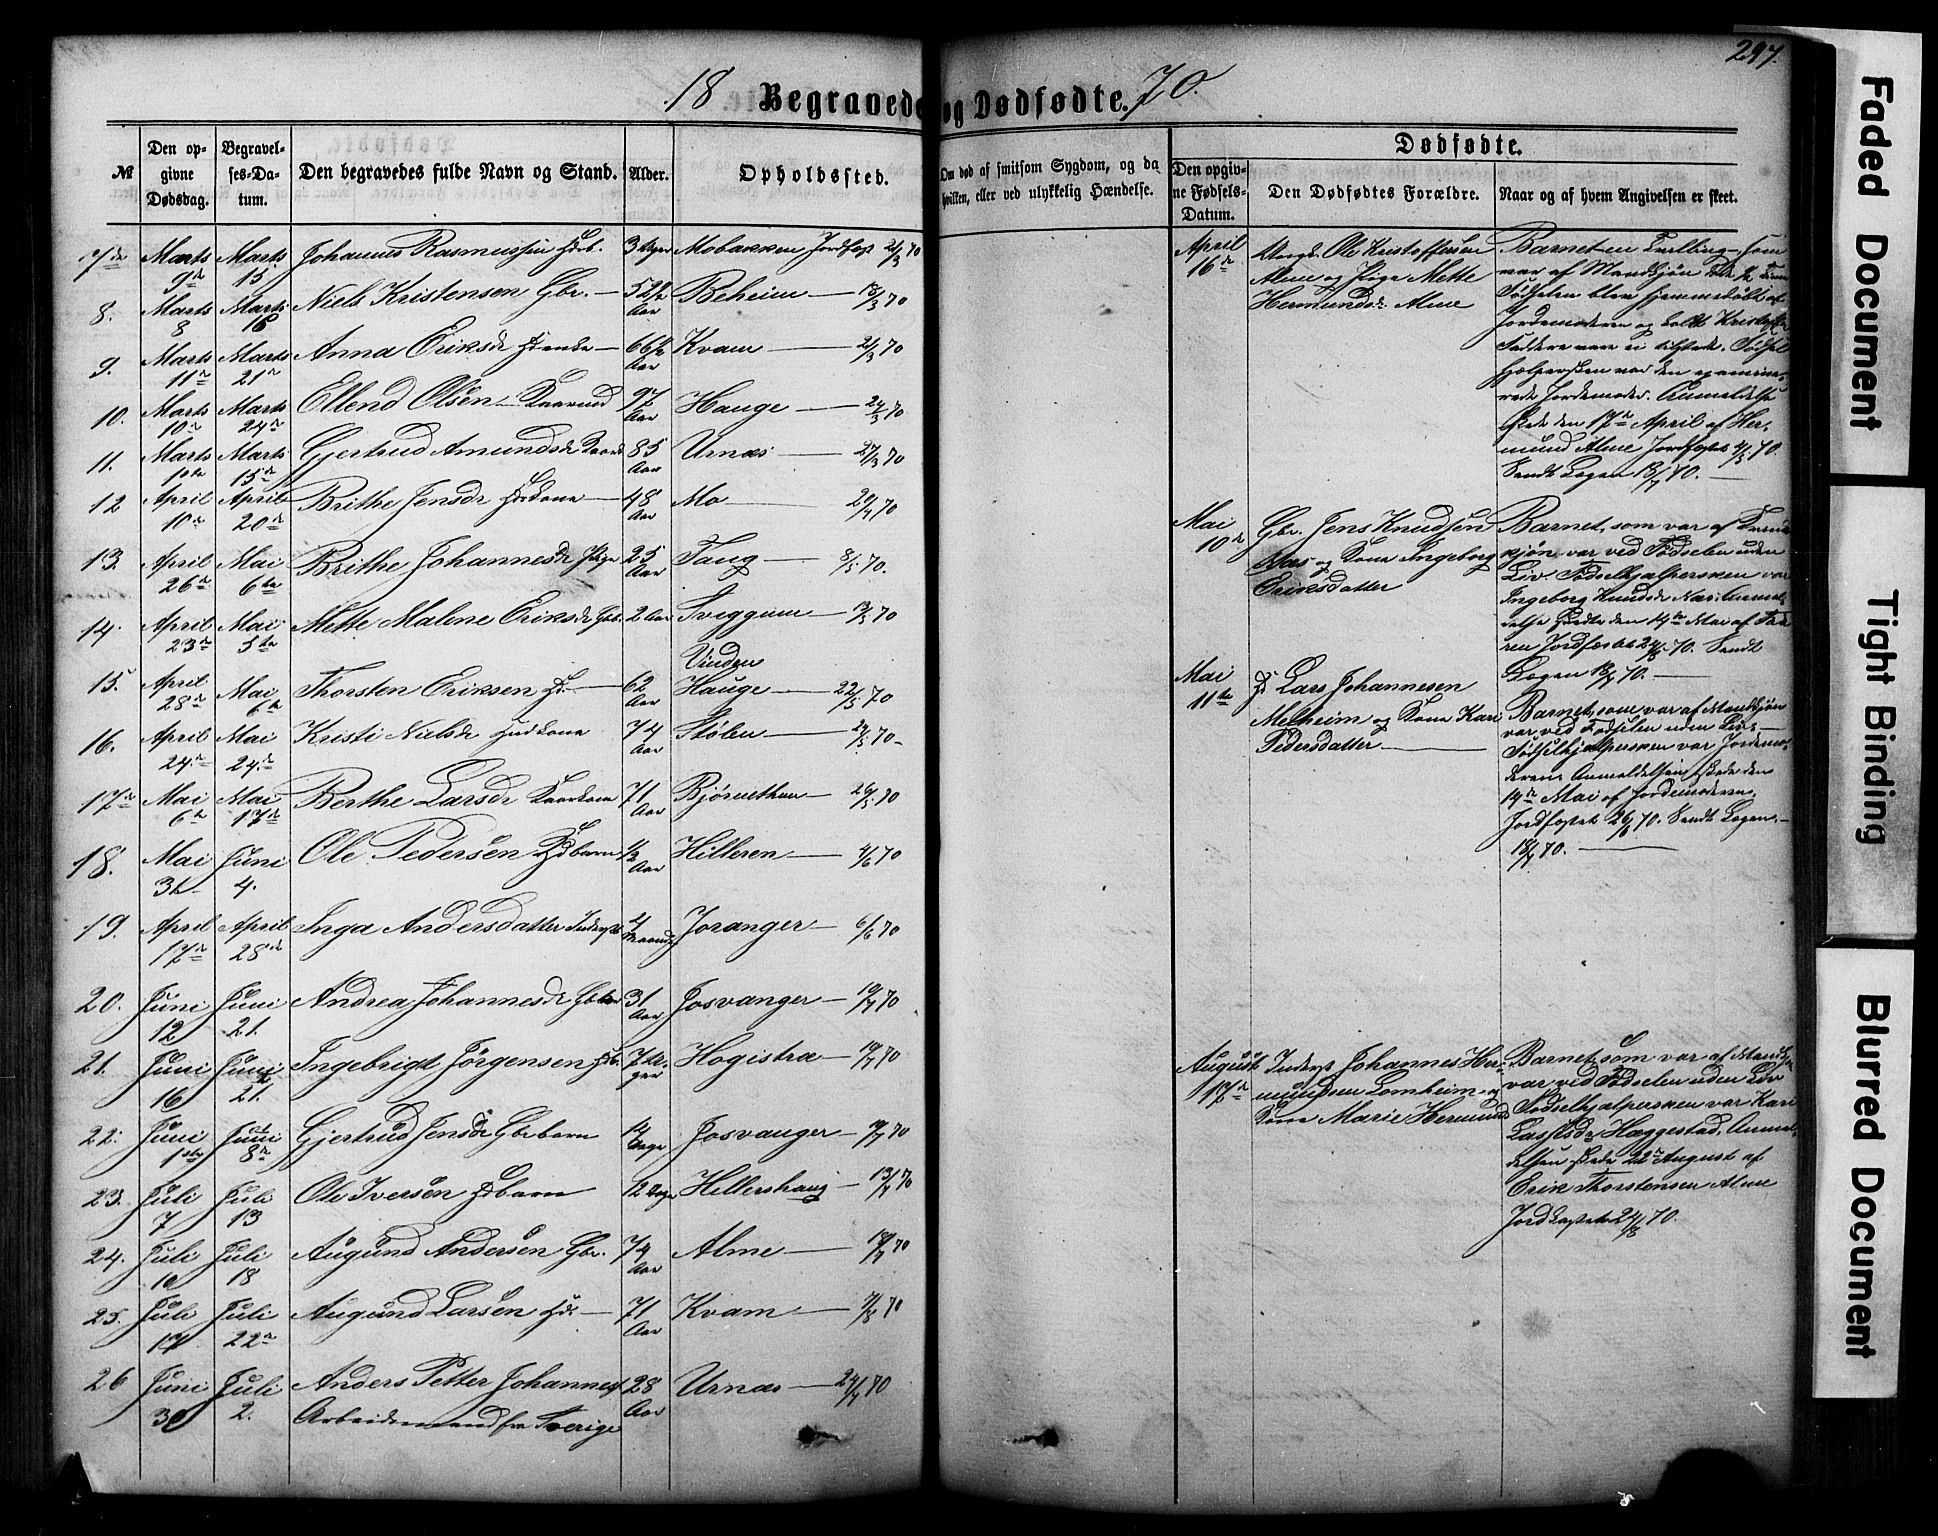 297.
18 Begravede og Dødfødte. 70.
№
Den opgivne Dødsdag.
Begravelses-Datum.
Den begravedes fulde Navn og Stand.
Alder.
Opholdssted.
Om død af smitsom Sygdom, og da
hvilken, eller ved ulykkelig Hændelse.
Dødfødte.
Den opgivne Fødsels-Datum.
Den Dødfødtes Forældre.
Naar og af hvem Angivelsen er skeet.
7de Marts 9de Marts 15 Johannes Rasmussen 3 Mobakken Jordfæst 2/3 70
8. Marts 8 Marts 16 Niels Kristensen Gbr. 52 1/2 Aar Beheim 18/3 70
9. Marts 11te Marts 21de Anna Eriksdr 66 1/2 Aar Kvam 21/3 70
10. Marts 10de Marts 24de Ellend Olsen 97 Aar Hauge 24/3 70
11. Marts Marts 15de Gjertrud Amundsdr 85 Aar Urnæs 27/3 70
12 April 10de April 20de Brithe Jensdr 48 Aar Mo 20/4 70
13. April 26de Mai 6te Brithe Johannesdr Pige 25 Aar Taug 8/5 70.
14. April 23de Mai 5te Mette Malene Eriksdr Gbr. 2 Aar Sveggum 13/5 70
Vinden
15. April 28de Mai 6te Thorsten Eriksen 62 Aar Hauge 22/5 70
16. April 24de Mai 24de Kristi Nielsdr 74 Aar Stølen 24/5 70
17de Mai 6te Mai 17de Berthe Larsdr 71 Aar Bjørnethun 29/5 70
18. Mai 31 Juni 4. Ole Pedersen 1/2 Aar Hilleren 4/6 70
19. April 17de April 28de Inga Andersdatter 4 Joranger 6/6 70
20. Juni 12 Juni 21. Andrea Johannesdr 31 Aar Josvanger 10/7 70
21. Juni 16 Juni 21. Ingebrigt Jørgensen 7 Høgistræ 10/7 70
22. Juni 1ste Juni 8de Gjertrud Jensdr Gbrbarn 14 Dage Josvanger 10/7 70
23. Juli 7 Juli 13 Ole Iversen 12 Dage Hillershaug 13/7 70
24. Juli 10 Juli 18 Augund Andersen Gbr. 74 Aar Alme 18/7 70
25. Juli 17 Juli 22de Augund Larsen 71 Aar Kvam 7/8 70
26 Juni 30 Juli 2. Anders Petter Johannes 28 Aar Urnæs 24/7 70
Arbeidsmand fra Sverige
April 16de
Ungk. Ole Kristoffersen
Alme og Pige Mette
Hermundsdr Alme
Barnet en Tvilling som
var af Mandkjøn
Fødselen blev hjemmedøbt af
Jordemoderen og kaldt Kristoffer
Faddere vare ei tilstede. Fødsels
hjælpersken var den examine-
rede Jordemoder. Anmeldelse
skede den 17de April af Her-
mund Alme Jordfæstet 4/5 70.
Sendt Lægen 18/7 70.
Mai 10de
Gbr. Jens Knudsen
Næs og Kone Ingeborg
Eriksdatter
Barnet, som var af Kvind
kjøn var ved Fødselen uden
Liv. Fødselhjælpersken var
Ingeborg Knudsdr Næs. Anmel
delse skede den 14de Mai af Fade
ren Jordfæstet 24/5 70. Sendt
Lægen 18/7 70.
Mai 11te
Lars Johannesen
Melheim og Kone Kari
Pedersdatter
Barnet, som var af Mandkjøn
var ved Fødselen uden Liv.
Fødselhjælpersken var Jordemo-
deren. Anmeldelsen skede den
14de Mai af Jordemoderen.
Jordfæstet 26/6 70. Sendt Lægen
18/7 70.
August 17de
Inderst Johannes Her-
mundsen Lomheim og
Kone Marie Hermunds
Barnet, som var af Mandkjøn
var ved Fødselen uden Liv
Fødselhjælpersken var Kari
Lassesdr Hæggestad. Anmel
delsen skede 22de August af
Erik Thorstensen Alme
Jordfæstet 24/8 70.
Faded Document
Tight Binding
Blurred Document